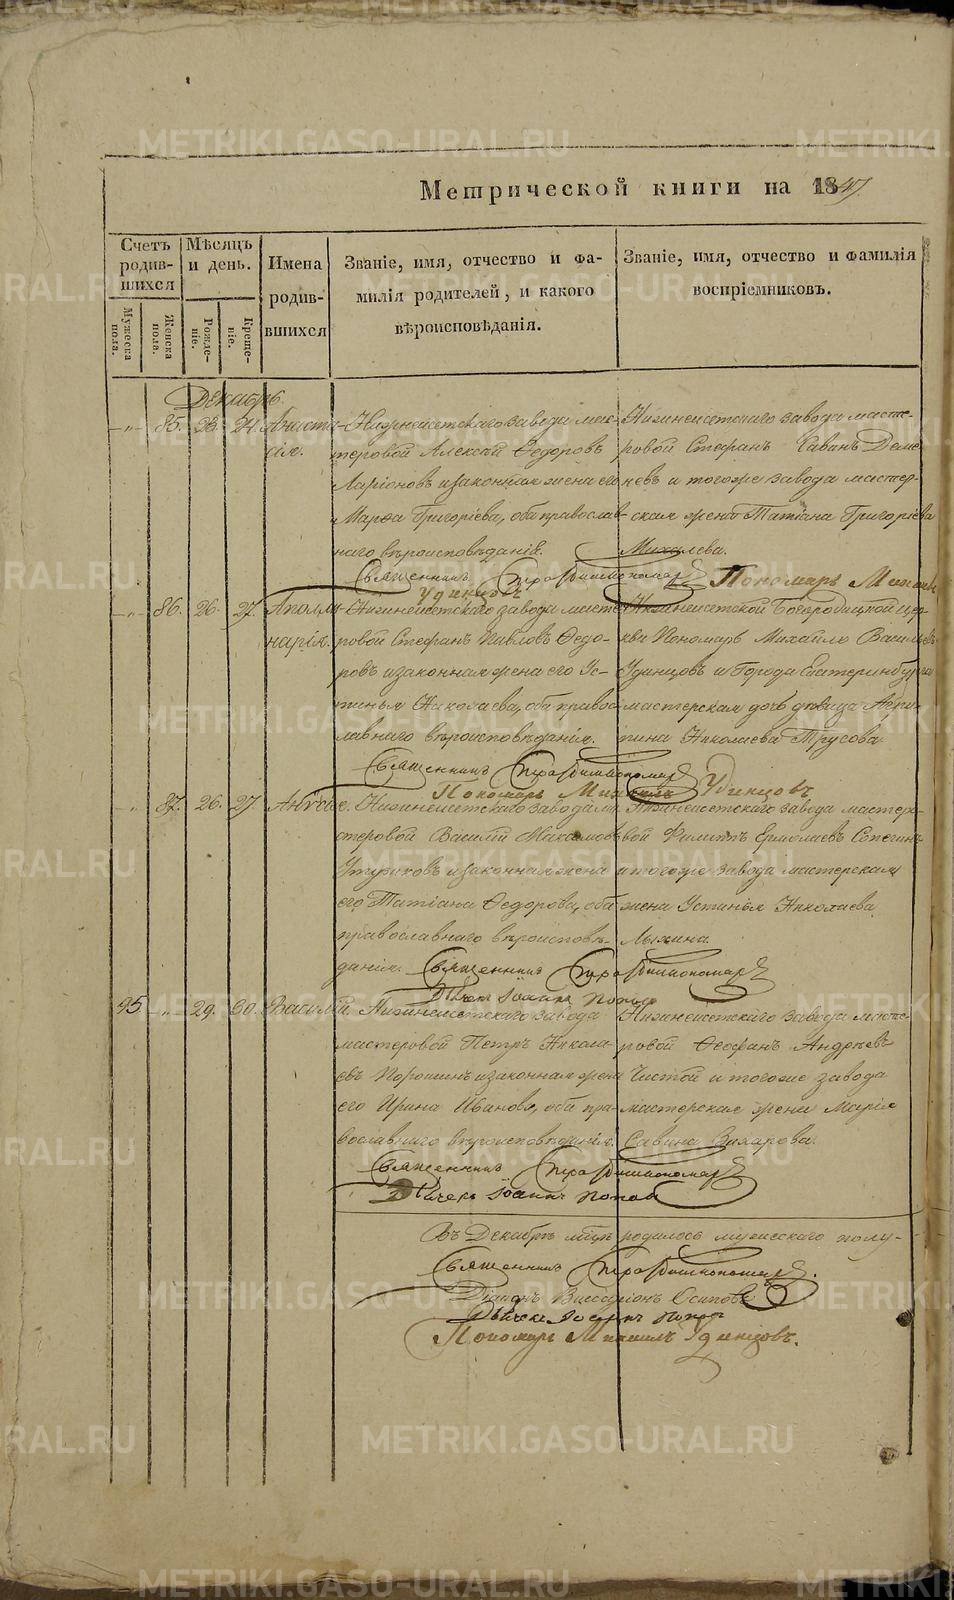 Метрической книги на 1847
Счетъ родившихся
Мѣсяцъ и день.
Имена родившихся
Званіе, имя, отчество и фамилія родителей, и какого вѣроисповѣданія.
Званіе, имя, отчество и фамилія воспріемниковъ.
Мужеска пола.
Женска пола.
Рожденіе.
Крещеніе.
Декабрь.
-"- 85. 23. 24. Анистасія.
Нижнеисетскаго завода мас-
теровой Алексѣй Ѳедоровъ
Ларіоновъ и законная жена его
Марѳа Григоріева, оба православ-
наго вѣроисповѣданія.
Нижнеисетскаго завода масте-
ровой Стефанъ Савинъ Деме-
невъ и тогоже завода мастер-
ская жена Татіана Григоріева
Михалева.
Священникъ
Пономарь Михаилъ
Удинцовъ
-"- 86. 26. 27. Аполли-
нарія.
Нижнеисетскаго завода масте-
ровой Стефанъ Павловъ Ѳедо-
ровъ и законная жена его Ус-
тинья Николаева, оба право-
славнаго вѣроисповѣданія.
Нижнеисетской Богородицкой цер-
кви Пономарь Михайло Васильевъ
Удинцовъ и Города Екатеринбурга
мастерская дочь дѣвица Агри-
пина Николаева Трусова
Священникъ
Пономарь Михаилъ Удинцовъ
-"- 87. 26. 27.
Нижнеисетскаго завода ма-
стеровой Василій Максимовъ
и законная жена
его Татіана Ѳедорова, оба
православнаго вѣроисповѣ-
данія.
Нижнеисетскаго завода мастеро-
вой Филиппъ Ермолаевъ
и тогоже завода мастерская
жена Устинья Николаева
Священникъ
Дьячекъ Іоаннъ Поповъ
95 -"- 29. 30. Василій.
Нижнеисетскаго завода
мастеровой Петръ Никола-
евъ Порошинъ и законная жена
его Ирина Иванова, оба пра-
вославнаго вѣроисповѣданія.
Нижнеисетскаго завода масте-
ровой Ѳеофанъ Андреевъ
Чистой и тогоже завода
мастерская жена Марія
Савина Вихарова.
Священникъ
Дьячекъ Іоаннъ Поповъ
Въ Декабрѣ мцѣ родилось мужескаго полу-
Священникъ
Діаконъ Виссаріонъ Осиповъ
Дьячекъ Поповъ
Пономарь Михаилъ Удинцовъ.
METRIKI.GASO-URAL.RU